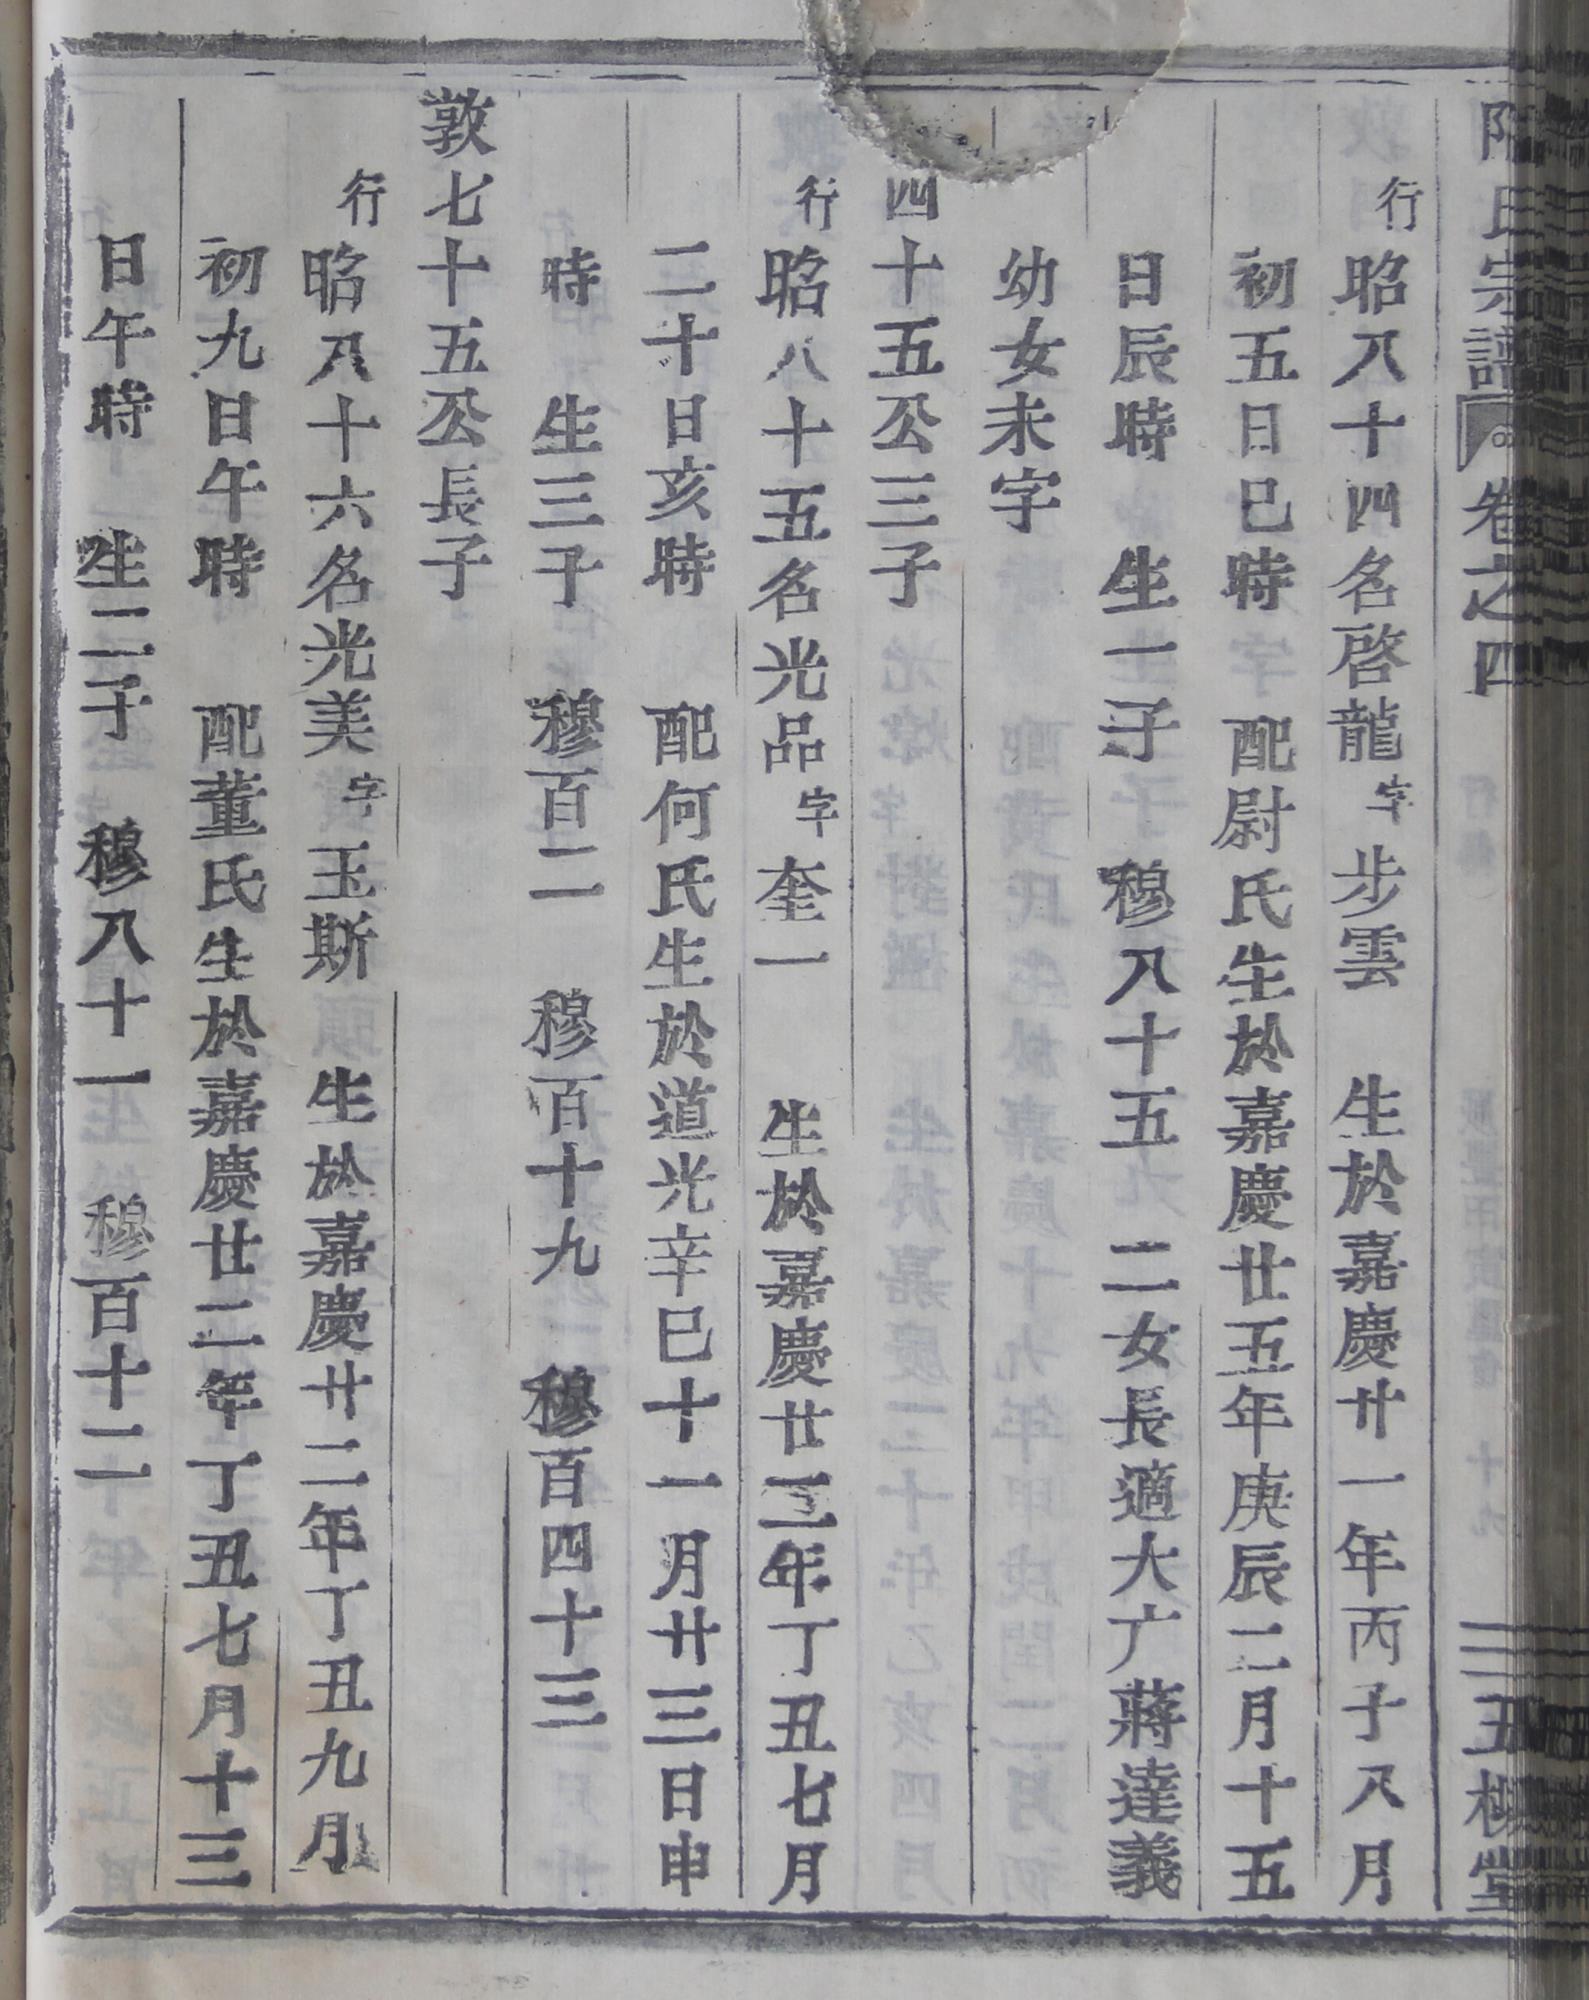 氏宗譜 卷之四 三五桞堂
行昭八十四名啓龍字步雲 生於嘉慶廿一年丙子八月
初五日巳時 配尉氏生於嘉慶廿五年庚辰二月十五
日辰時 生一子 穆八十五 二女長適大广蔣達義
幼女未字
四十五公三子
行昭八十五名光品字奎一 生於嘉慶廿二年丁丑七月
二十日亥時 配何氏生於道光辛巳十一月廿三日申
時 生三子 穆百二 穆百十九 穆百四十三
敦七十五公長子
行昭八十六名光美字玉斯 生於嘉慶廿二年丁丑九月
初九日午時 配董氏生於嘉慶廿二年丁丑七月十三
日午時 生二子 穆八十一 穆百十二